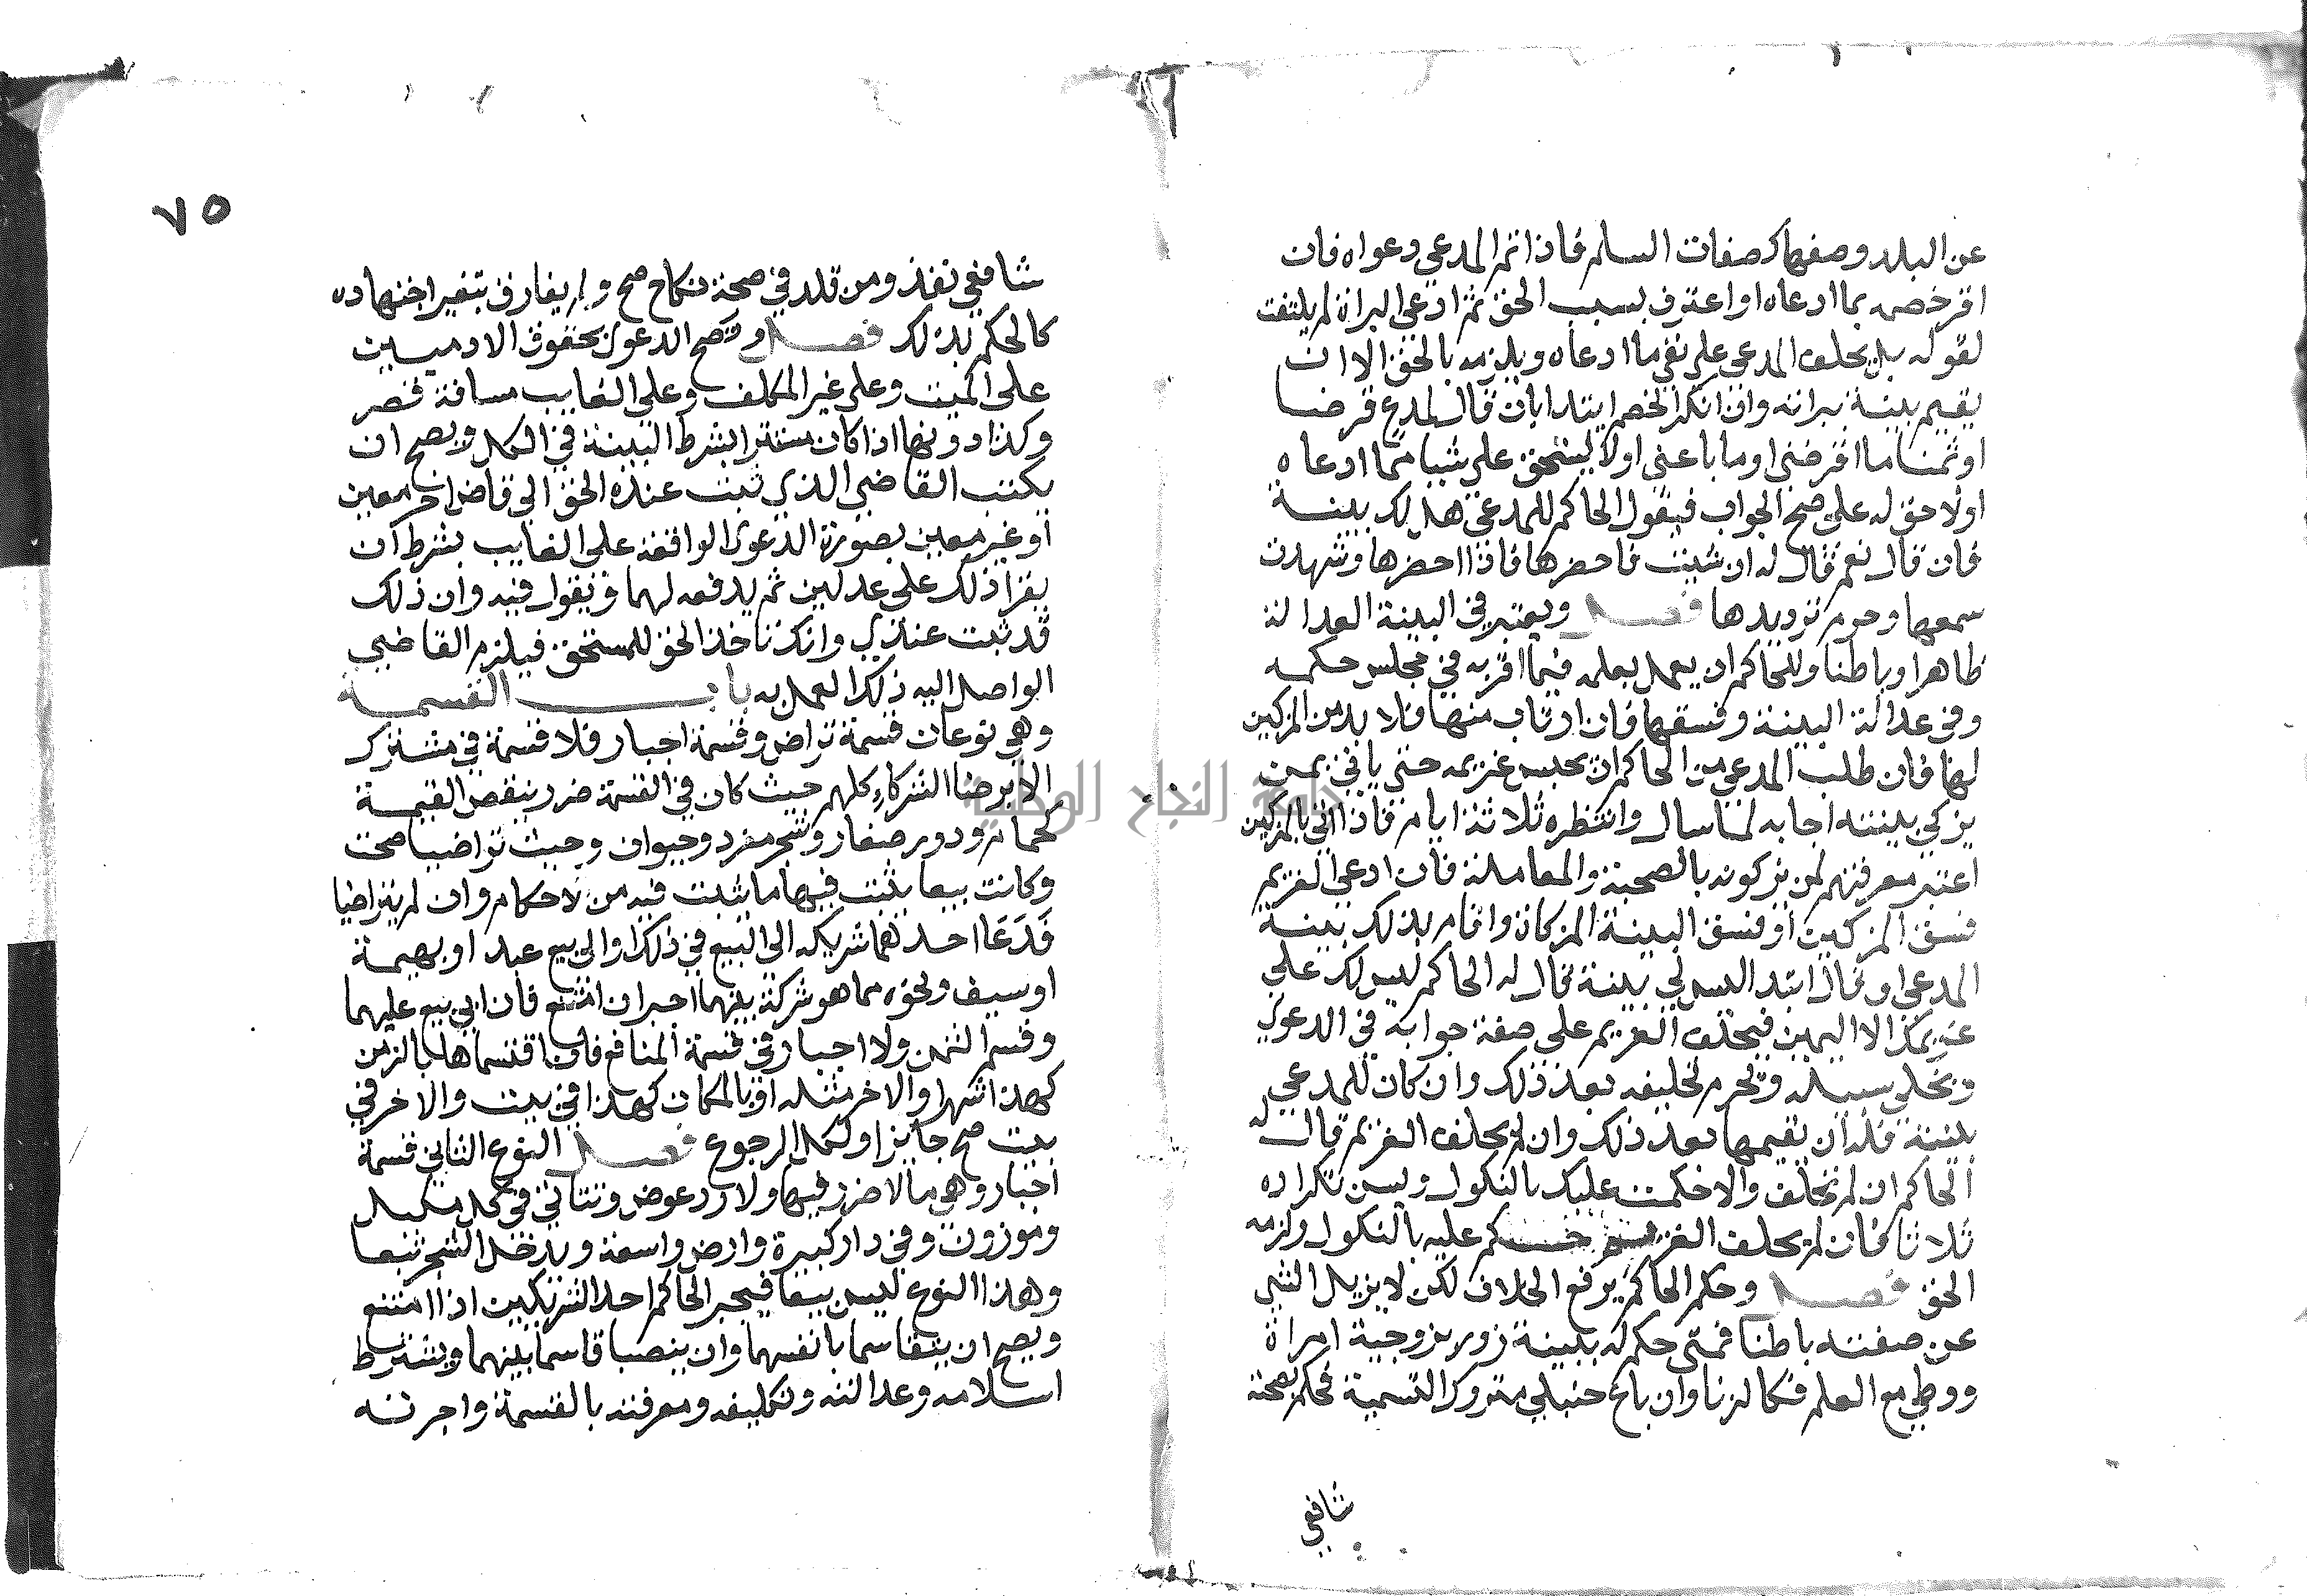 عن البلد وصفها كصفات السلم فاذا تم المدعي دعواه فان
اقر خصمه بما ادعاه او اعترف بسبب الحق ثم ادعى البراة لم يلتفت
لقوله بل يحلف المدعي على نفي ما ادعاه ويلزمه بالحق الا ان
يقيم بينة ببراته وان انكر الخصم ابتدا بان قال لمدع قرضا
او ثمنا ما اقرضني او ما باعني او لا يستحق علي شيا مما ادعاه
او لا حق له علي صح الجواب فيقول الحاكم للمدعي هل لك بينة
فان قال نعم قال له ان شيت فاحضرها فاذا احضرها وشهدت
سمعها وحرم ترديدها فصل ويعتبر في البينة العدالة
ظاهرا وباطنا وللحاكم ان يعمل بعلمه فيما اقر به في مجلس حكمه
وفي عدالة البينة وفسقها فان ارتاب منها فلا بد من المزكين
لها فان طلب المدعي من الحاكم ان يحبس غريمه حتى ياتي بمن
يزكي بينته اجابه لما سال وانتظره ثلاثة ايام فاذا اتى بالمزكين
اعتبر معرفتهم لمن يزكونه بالصحبة والمعاملة فان ادعى الغريم
فسق المزكين او فسق البينة المزكاة واقام بذلك بينة
المدعي او قال ابتدا ليس لي بينة قال له الحاكم ليس لك على
غريمك الا اليمين فيحلف الغريم على صفة جوابه في الدعوى
ويخلى سبيله ويحرم تحليفه بعد ذلك وان كان للمدعي
بينة فله ان يقيمها بعد ذلك وان لم يحلف الغريم قال له
الحاكم ان لم تحلف والا حكمت عليك بالنكول ويسن تكراره
ثلاثا فان لم يحلف الغريم حكم عليه بالنكول ولزمه
الحق فصل وحكم الحاكم يرفع الخلاف لكن لا يزيل الشي
عن صفته باطنا فمتى حكم له ببينة زور بزوجية امراة
ووطي مع العلم فكالزنا وان باع حنبلي متروك التسمية فحكم بصحته
شافعي
٧٥
شافعي نفذ ومن قلد في صحة نكاح صح ولم يفارق بتغير اجتهاده
كالحكم بذلك فصل وتصح الدعوى بحقوق الادميين
على الميت وعلى غير المكلف وعلى الغايب مسافة قصر
وكذا دونها اذا كان مستترا بشرط البينة في الكل ويصح ان
يكتب القاضي الذي ثبت عنده الحق الى قاض اخر معين
او غير معين بصورة الدعوى الواقعة على الغايب بشرط ان
يقرا ذلك على عدلين ثم يدفعه لهما ويقول فيه وان ذلك
قد ثبت عندي وانك تاخذ الحق للمستحق فيلزم القاضي
الواصل اليه ذلك العمل به باب القسمة
وهي نوعان قسمة تراض وقسمة اجبار فلا قسمة في مشترك
الا برضا الشركاء كلهم حيث كان في القسمة ضرر ينقص القيمة
كحمام ودور صغار وشجر مفرد وحيوان وحيث تراضيا صحت
وكانت بيعا يثبت فيها ما يثبت فيه من لاحكام وان لم يتراضيا
فدعا احدهما شريكه الى البيع في ذلك او الى بيع عبد او بهيمة
او سيف ونحوه مما هو شركة بينهما اجبر ان امتنع فان ابى بيع عليهما
وقسم الثمن ولا اجبار في قسمة المنافع فان اقتسماها بالزمن
كهذا شهرا والاخر مثله او بالمكان كهذا في بيت والاخر في
بيت صح جايزا ولكل الرجوع فصل النوع الثاني قسمة
اجبار وهي ما لا ضرر فيها ولا رد عوض وتتاتى في كل مكيل
وموزون وفي دار كبيرة وارض واسعة ويدخل الشجر تبعا
وهذا النوع ليس بيعا فيجبر الحاكم احد الشريكين اذا امتنع
ويصح ان يتقاسما بانفسهما وان ينصبا قاسما بينهما ويشترط
اسلامه وعدالته وتكليفه ومعرفته بالقسمة واجرته
جامعة النجاح الوطنية